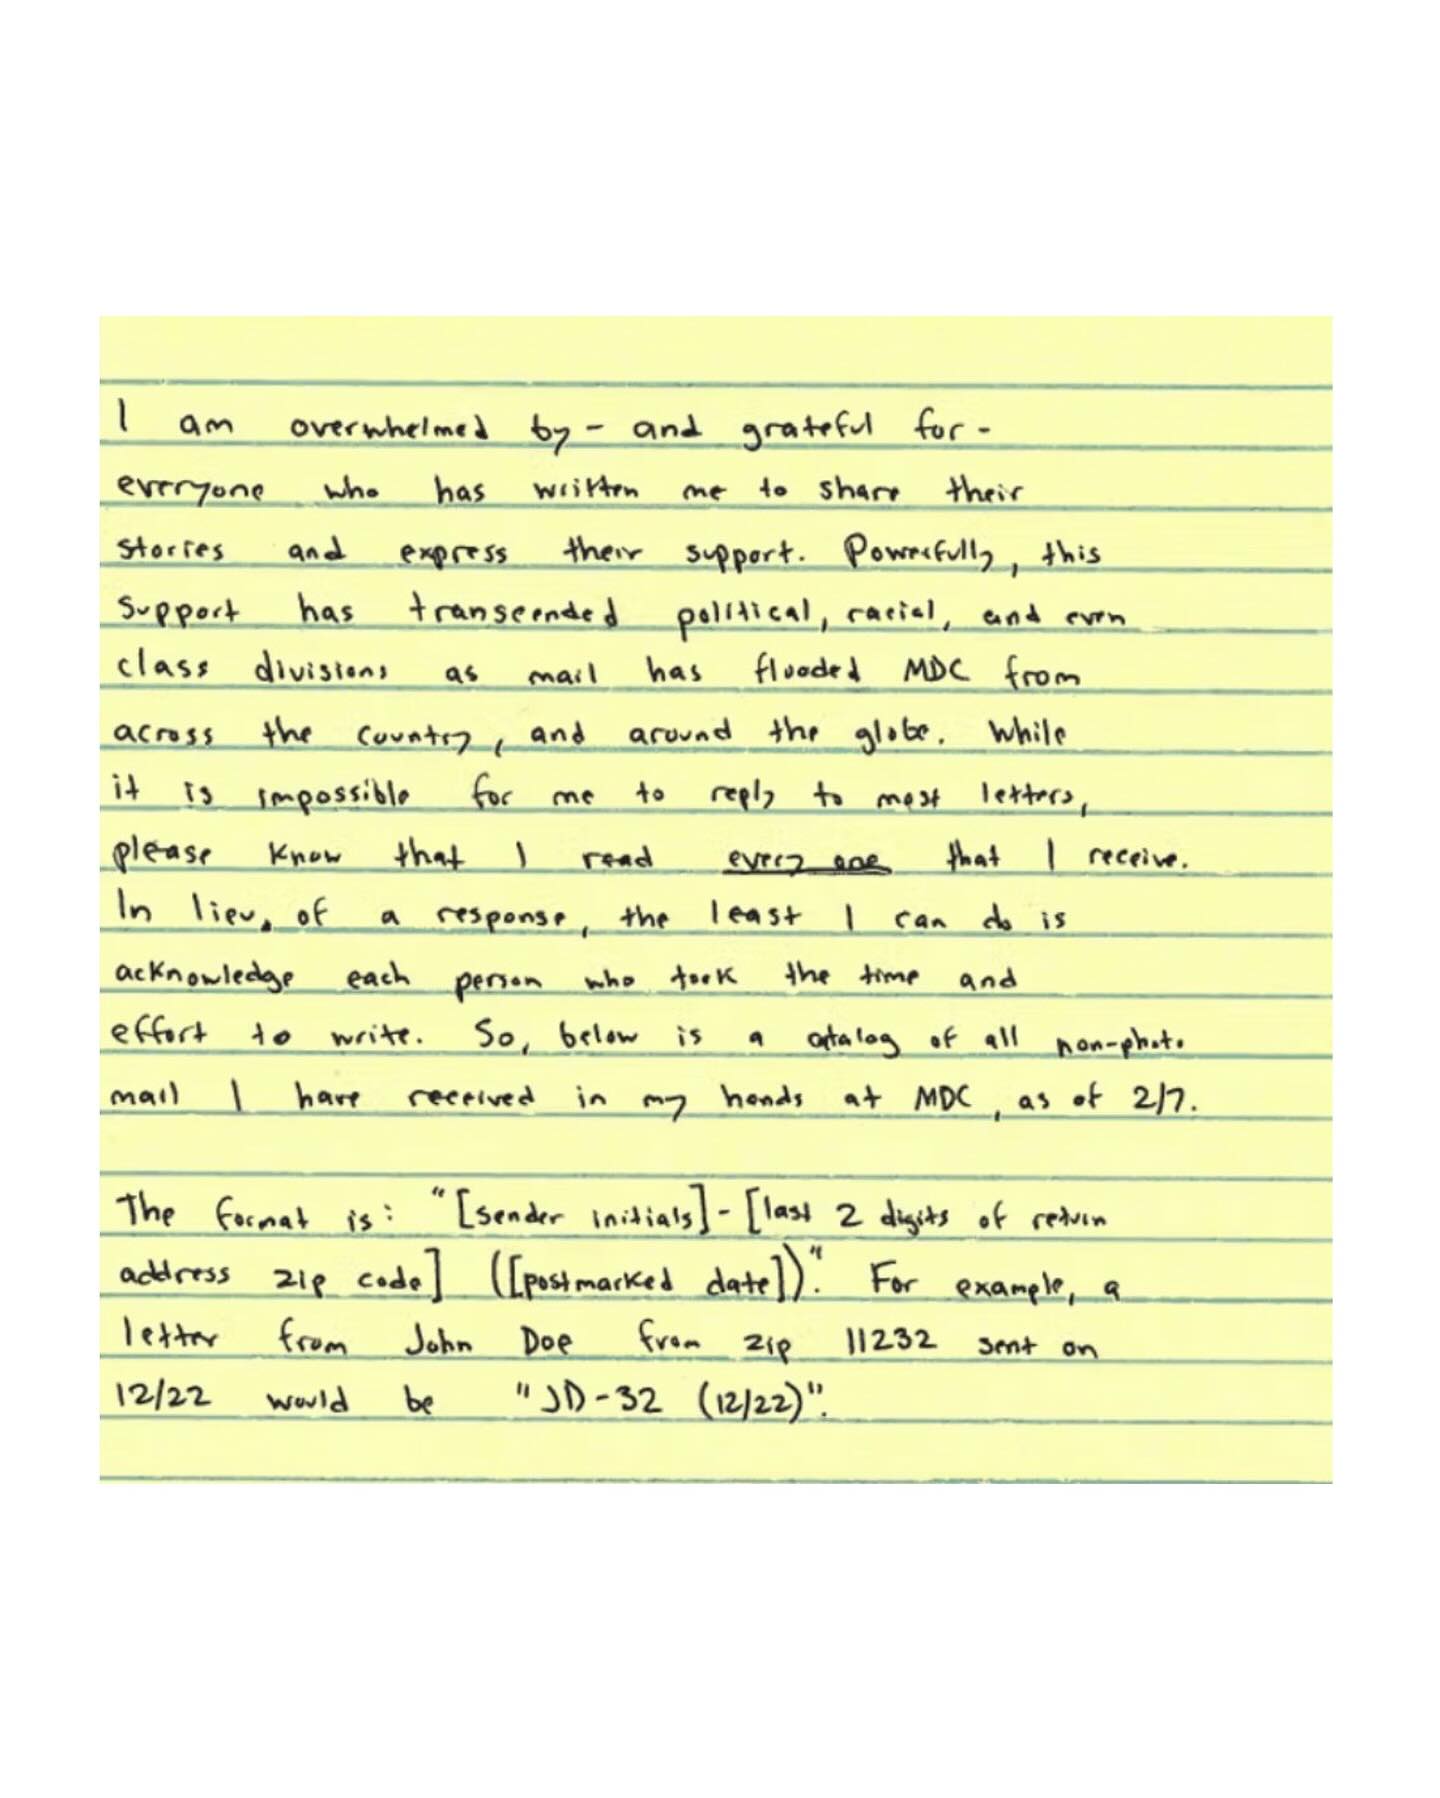 I am overwhelmed by - and grateful for -
everyone who has written me to share their
stories and express their support. Powerfully, this
support has transcended political, racial, and even
class divisions as mail has flooded MDC from
across the country, and around the globe. While
it is impossible for me to reply to most letters,
please know that I read every one that I receive.
In lieu of a response, the least I can do is
acknowledge each person who took the time and
effort to write. So, below is a catalog of all non-photo
mail I have received in my hands at MDC, as of 2/7.
The format is: "[sender initials]-[last 2 digits of return
address zip code] ([postmarked date])". For example, a
letter from John Doe from zip 11232 sent on
12/22 would be "JD-32 (12/22)".